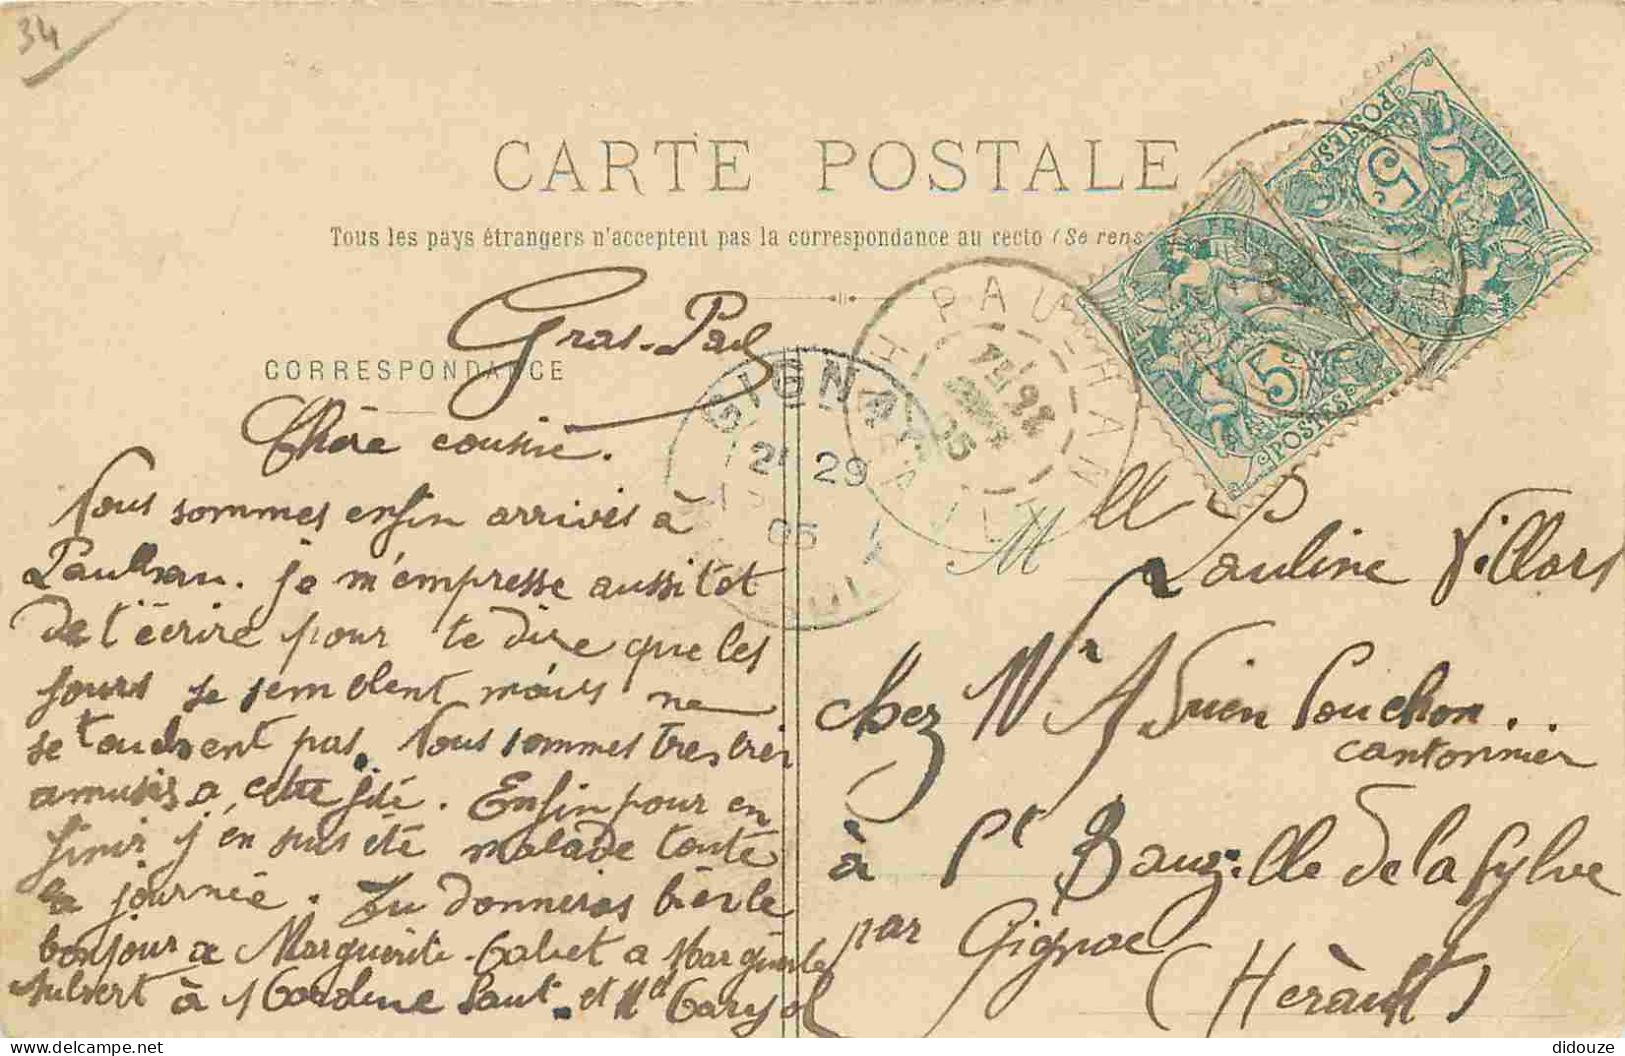 34
CARTE POSTALE
Tous les pays étrangers n'acceptent pas la correspondance au recto (Se rens
CORRESPONDANCE
Gras-Paul
Chère cousine.
Nous sommes enfin arrivés à
Paulhan. je m'empresse aussitot
de t'écrire pour te dire que les
jours se semblent mais ne
se touchent pas. Nous sommes tres tres
amusés a cette. Enfin pour en
finir j'en suis été malade toute
la journée. Tu donneras bien le
bonjour a Marguerite Calvet a Marguerite
à et Mel
PAULHAN
HÉRAULT
GIGNAC
29
05
FRANÇAISE
POSTES
5c
5c
POSTES
Mlle Pauline Villars
chez Mr Adrien Pouchon..
cantonnier
à St Bauzille de la Sylve
par Gignac
(Hérault)
didouze